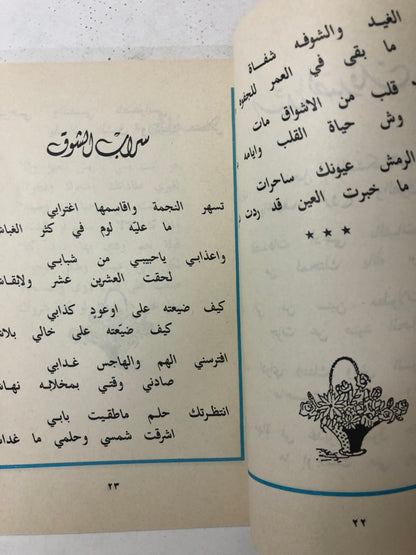 الغيد والشوفه شفاة
ما بقى في العمر
قلب من الاشواق مات
وش حياة القلب وايامه
الرمش عيونك ساحرات
ما خبرت العين قد ردت
* * *
٢٢
سراب الشوق
تسهر النجمة واقاسمها اغترابي
ما عليّه لوم في كثر
واعذابي ياحبيبي من شبابي
لحقت العشرين عشر
كيف ضيعته على اوعودٍ كذابي
كيف ضيّعته على خالي
افترسني الهم والهاجس غدابي
صادني وقتي بمخلابه
انتظرتك حلم ماطقيت بابي
اشرقت شمسي وحلمي ما
٢٣